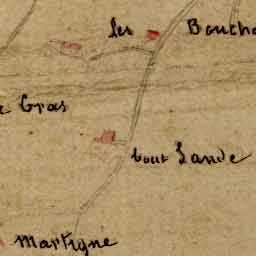 les Bouch
Gras
bout Lande
Martigné